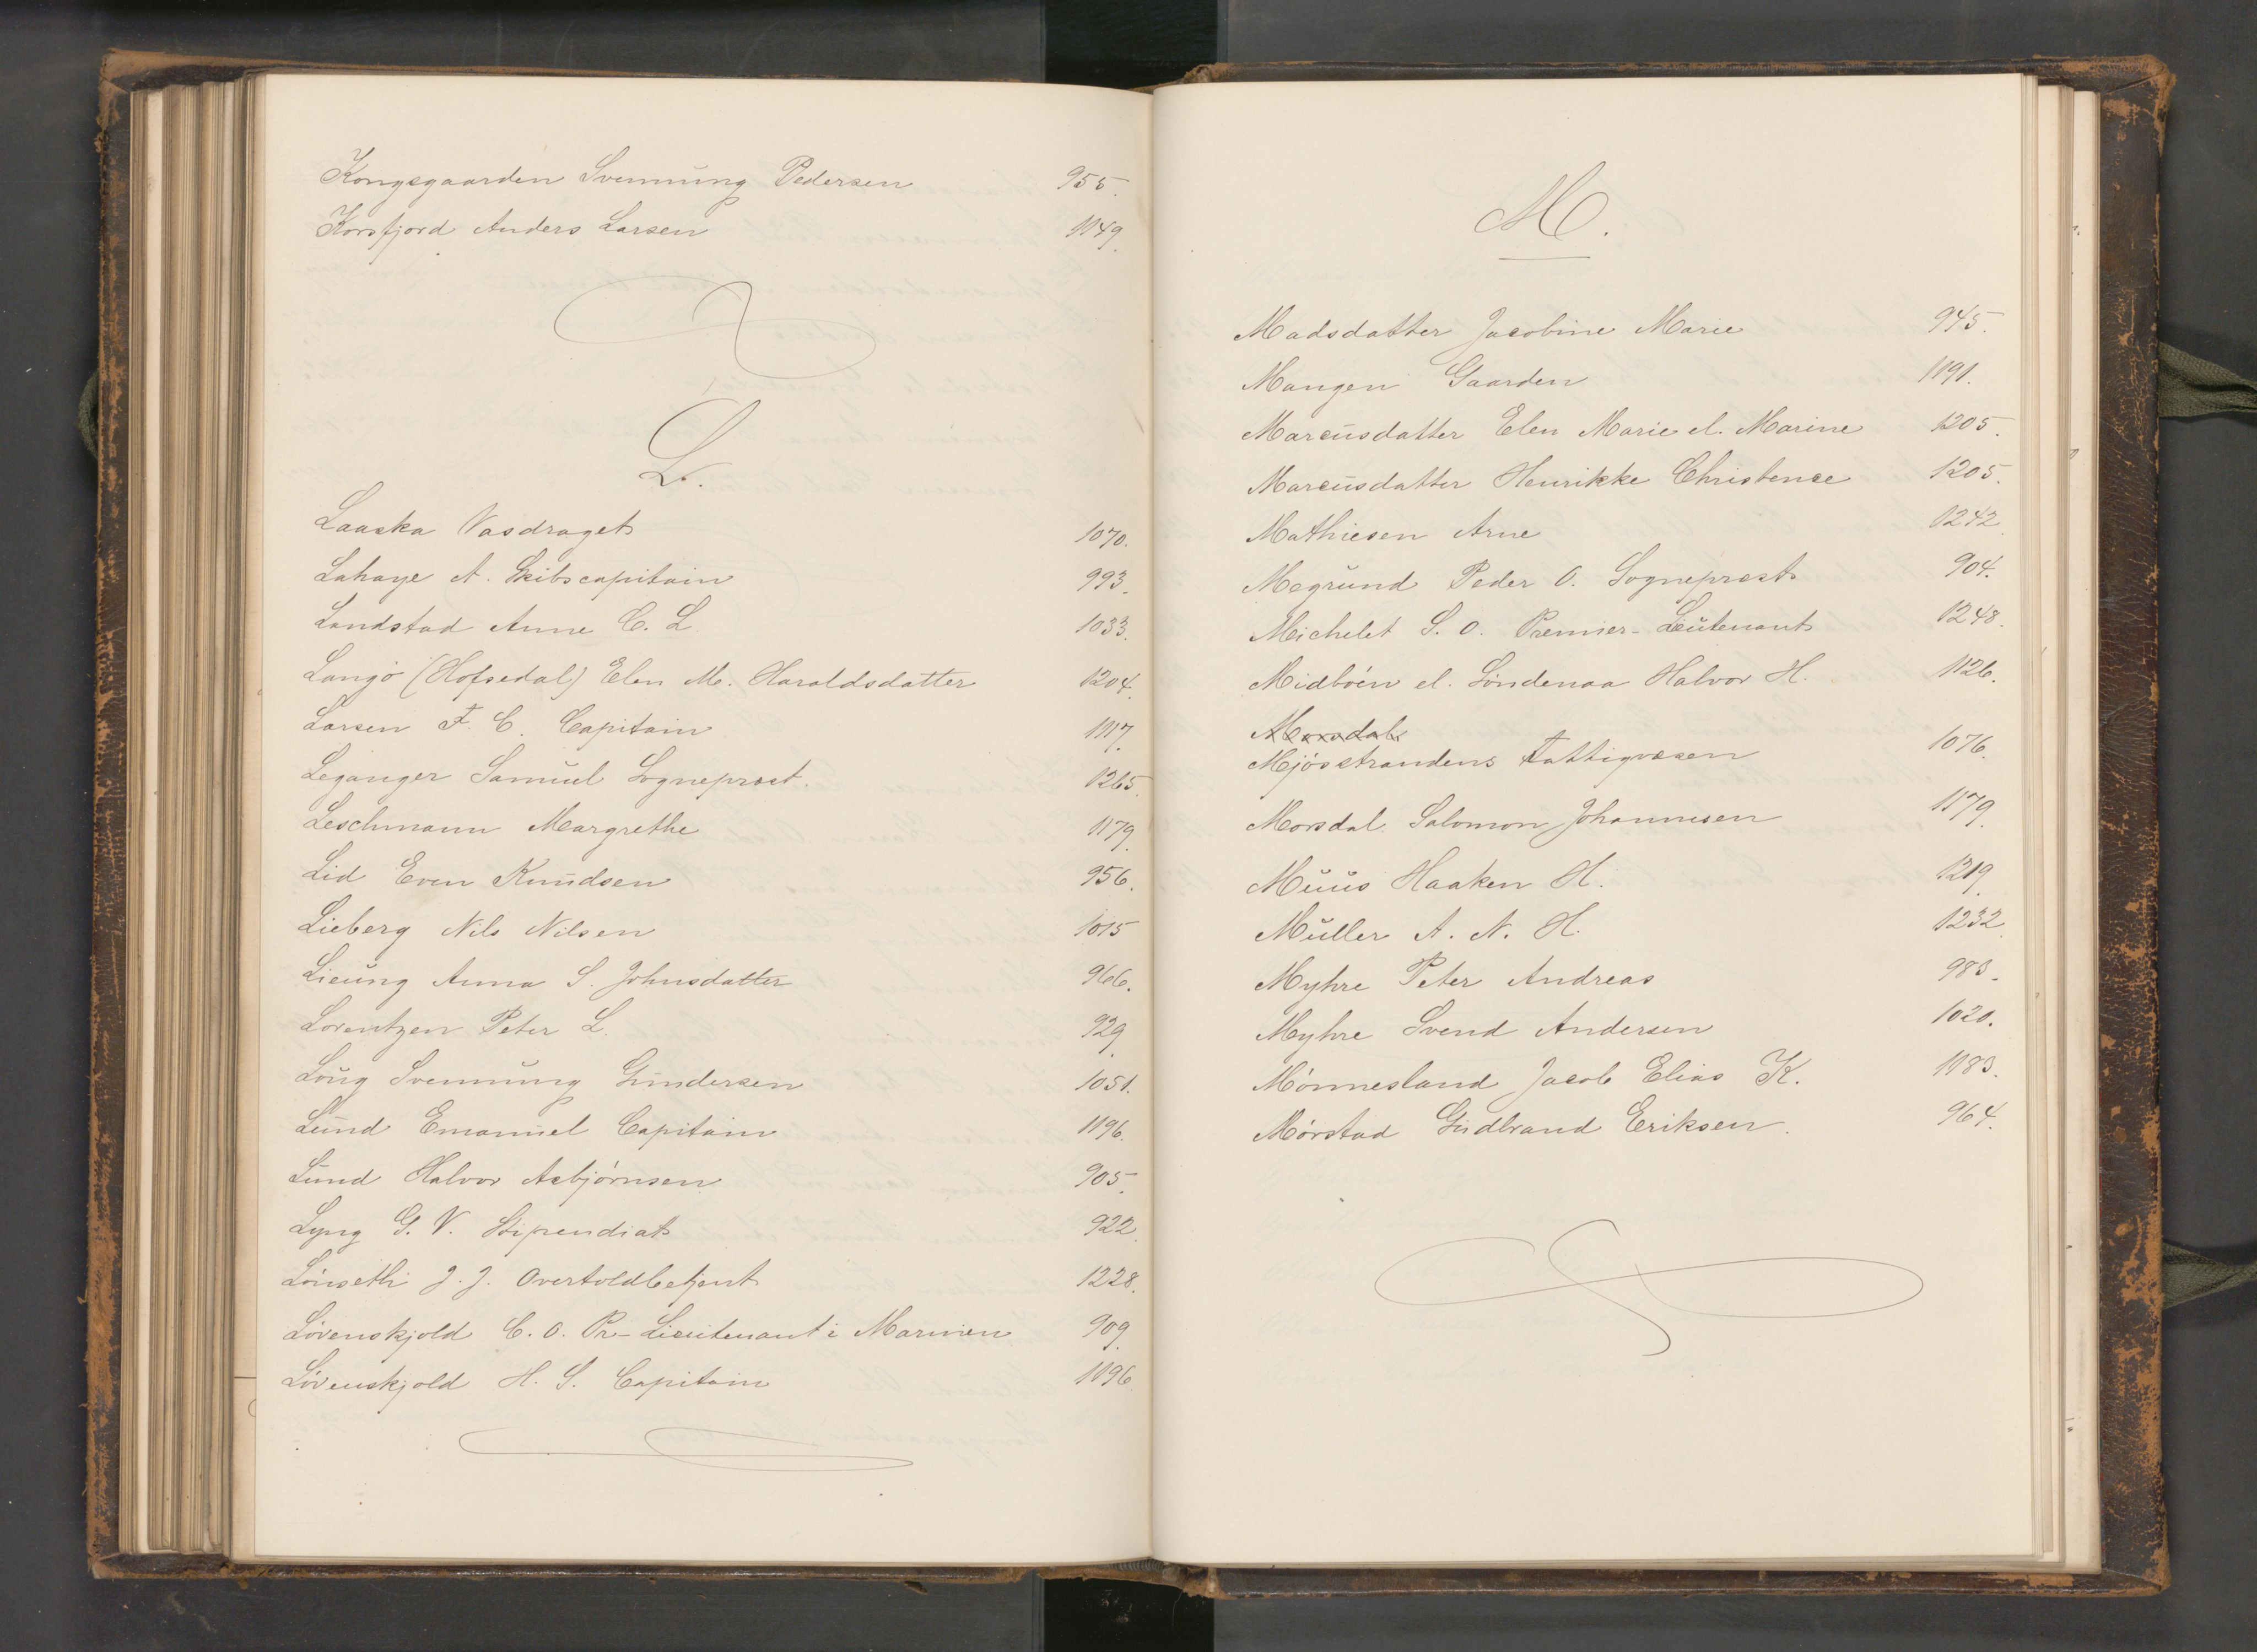 Kongsgaarden Svennung Pedersen 955.
Korsfjord Anders Larsen 1049.
L.
Laaska Vasdraget 1070.
Lahaye A. Skibscapitain 993.
Landstad Anne C. L. 1033.
Langö (Hofsedal) Elen M. Haraldsdatter 1204.
Larsen F. C. Capitain 1117.
Leganger Samuel Sogneprest. 1265.
Leschmann Margrethe 1179.
Lid Even Knudsen 956.
Lieberg Nils Nilsen 1015
Lieung Anna S. Johnsdatter 966.
Lorentzen Peter L. 929.
Loug Svennung Gundersen 1051.
Lund Emanuel Capitain 1196.
Lund Halvor Asbjörnsen 905.
Lyng G. V. Stipendiat 922.
Lönseth J. J. Overtoldbetjent 1228.
Lövenskjold C. O. Pr-Lieutenant i Marinen 909.
Lövenskjold H. S. Capitain 1196
M.
Madsdatter Jacobine Marie 945.
Mangen Gaarden 1191.
Marcusdatter Elen Marie el. Marine 1205.
Marcusdatter Henrikke Christence 1205.
Mathiesen Arne 1242
Megrund Peder O. Sogneprest 904.
Michelet S. O. Premier-Leutenant 1248.
Midböen el. Söndenaa Halvor H. 1126.
Morsdal
Mjösstrandens Fattigvæsen 1076.
Morsdal Salomon Johannesen 1179.
Muus Haaken H. 1219.
Muller A. N. H. 1232.
Myhre Peter Andreas 983.
Myhre Svend Andersen 1020.
Mönnesland Jacob Elias K. 1183.
Mörstad Gudbrand Eriksen. 964.